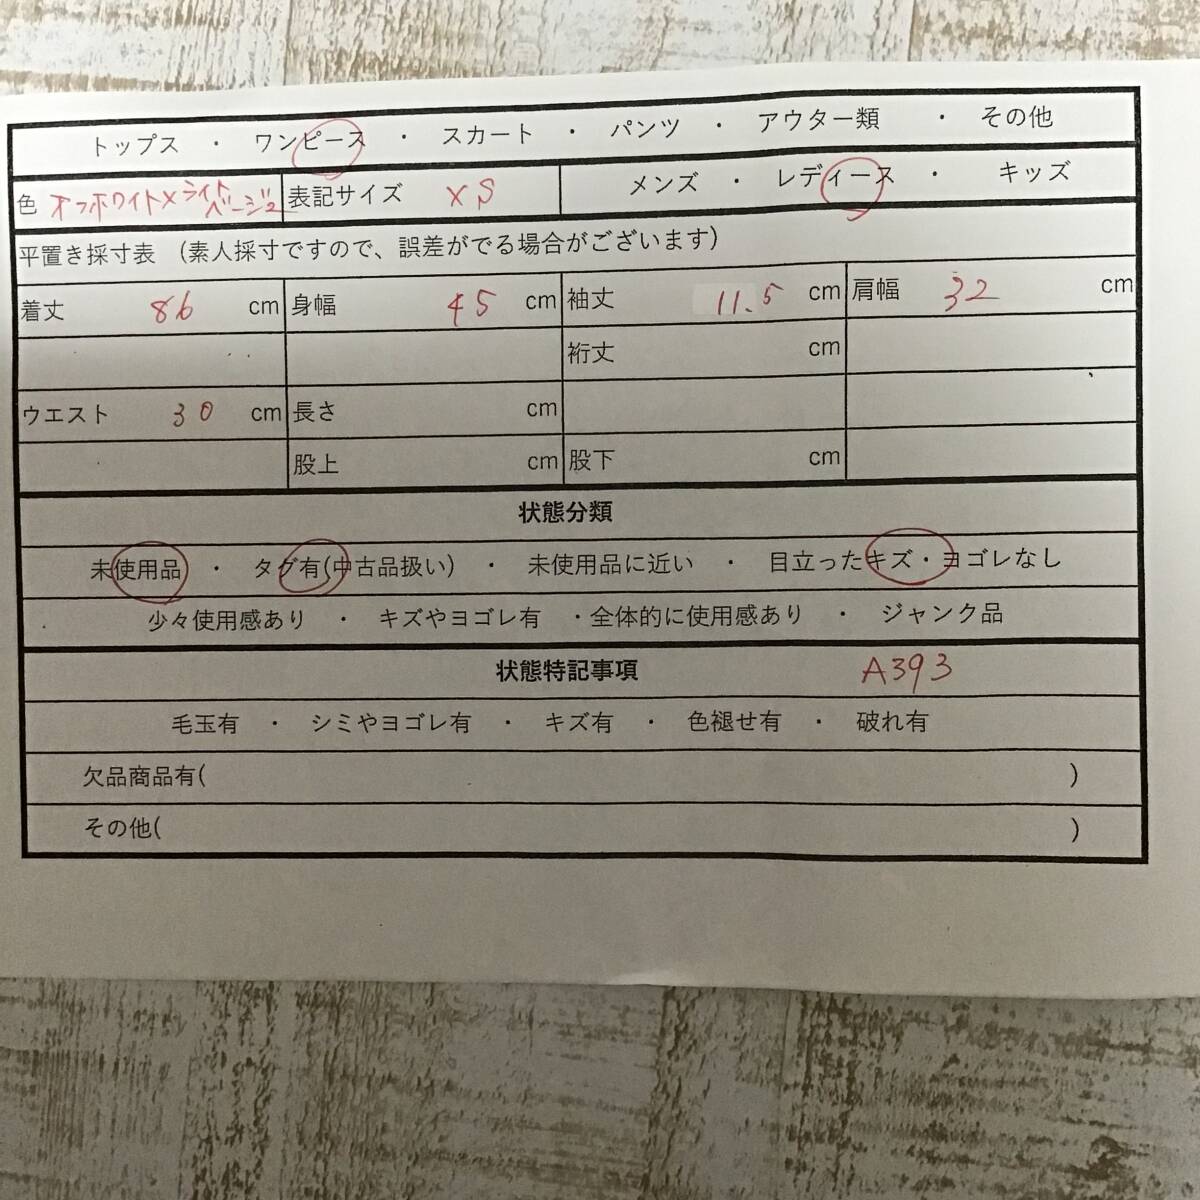 トップス ・ ワンピース ・ スカート ・ パンツ ・ アウター類 ・ その他
色 オフホワイト×ライトベージュ 表記サイズ XS メンズ ・ レディース ・ キッズ
平置き採寸表 (素人採寸ですので、誤差がでる場合がございます)
着丈 86 cm 身幅 45 cm 袖丈 11.5 cm 肩幅 32 cm
裄丈 cm
ウエスト 30 cm 長さ cm
股上 cm 股下 cm
状態分類
未使用品 ・ タグ有(中古品扱い) ・ 未使用品に近い ・ 目立ったキズ・ヨゴレなし
少々使用感あり ・ キズやヨゴレ有 ・全体的に使用感あり ・ ジャンク品
状態特記事項 A393
毛玉有 ・ シミやヨゴレ有 ・ キズ有 ・ 色褪せ有 ・ 破れ有
欠品商品有( )
その他( )